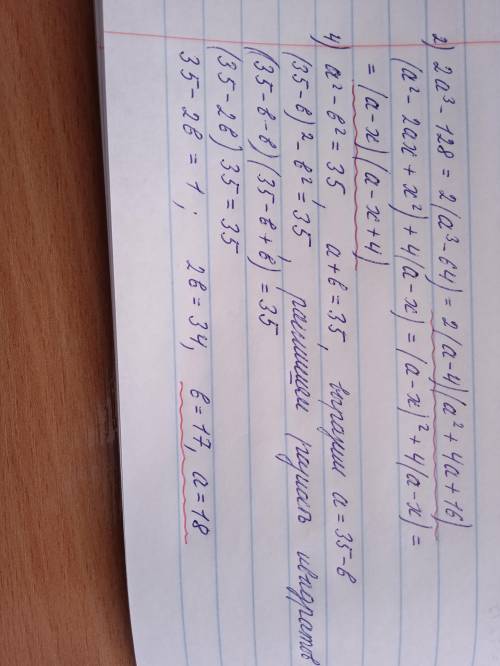 2) 2a³ - 128 = 2(a³ - 64) = 2(a-4)(a² + 4a + 16)
(a² - 2ax + x²) + 4(a-x) = (a-x)² + 4(a-x) =
= (a-x)(a-x+4)
4) a² - в² = 35, a+в = 35, выразим a = 35-в
(35-в)² - в² = 35, распишем разность квадратов
(35-в-в)(35-в+в) = 35
(35-2в) 35 = 35
35-2в = 1; 2в = 34, в = 17, a = 18